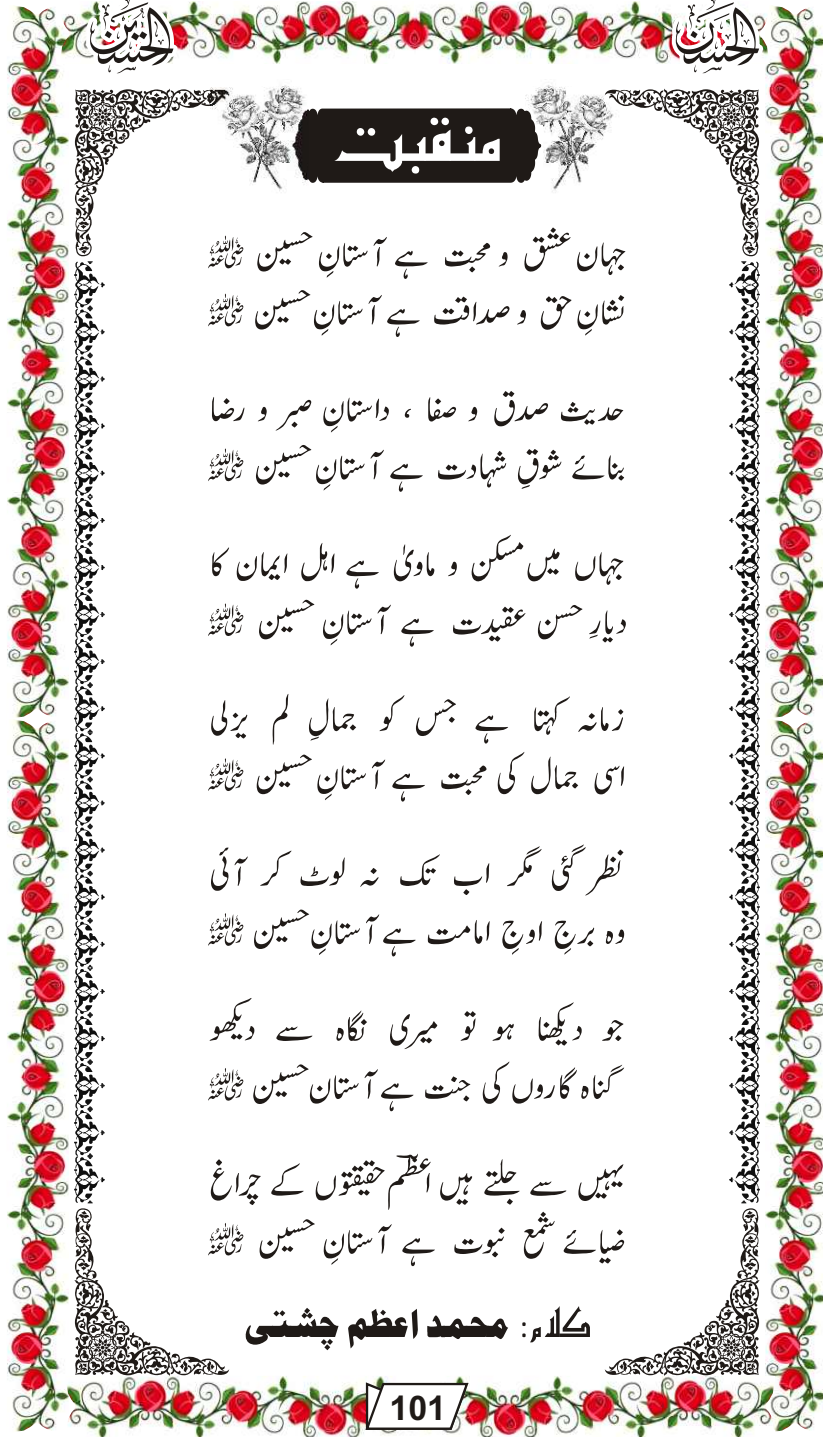 الحسین الحسین
منقبت
جہان عشق و محبت ہے آستانِ حسین رضی اللہ عنہ
نشانِ حق و صداقت ہے آستانِ حسین رضی اللہ عنہ
حدیث صدق و صفا ، داستانِ صبر و رضا
بنائے شوقِ شہادت ہے آستانِ حسین رضی اللہ عنہ
جہاں میں مسکن و ماویٰ ہے اہل ایمان کا
دیارِ حسن عقیدت ہے آستانِ حسین رضی اللہ عنہ
زمانہ کہتا ہے جس کو جمالِ لم یزلی
اسی جمال کی محبت ہے آستانِ حسین رضی اللہ عنہ
نظر گئی مگر اب تک نہ لوٹ کر آئی
وہ برجِ اوجِ امامت ہے آستانِ حسین رضی اللہ عنہ
جو دیکھنا ہو تو میری نگاہ سے دیکھو
گناہ گاروں کی جنت ہے آستان حسین رضی اللہ عنہ
یہیں سے جلتے ہیں اعظم حقیقتوں کے چراغ
ضیائے شمع نبوت ہے آستانِ حسین رضی اللہ عنہ
کلام: محمد اعظم چشتی
101